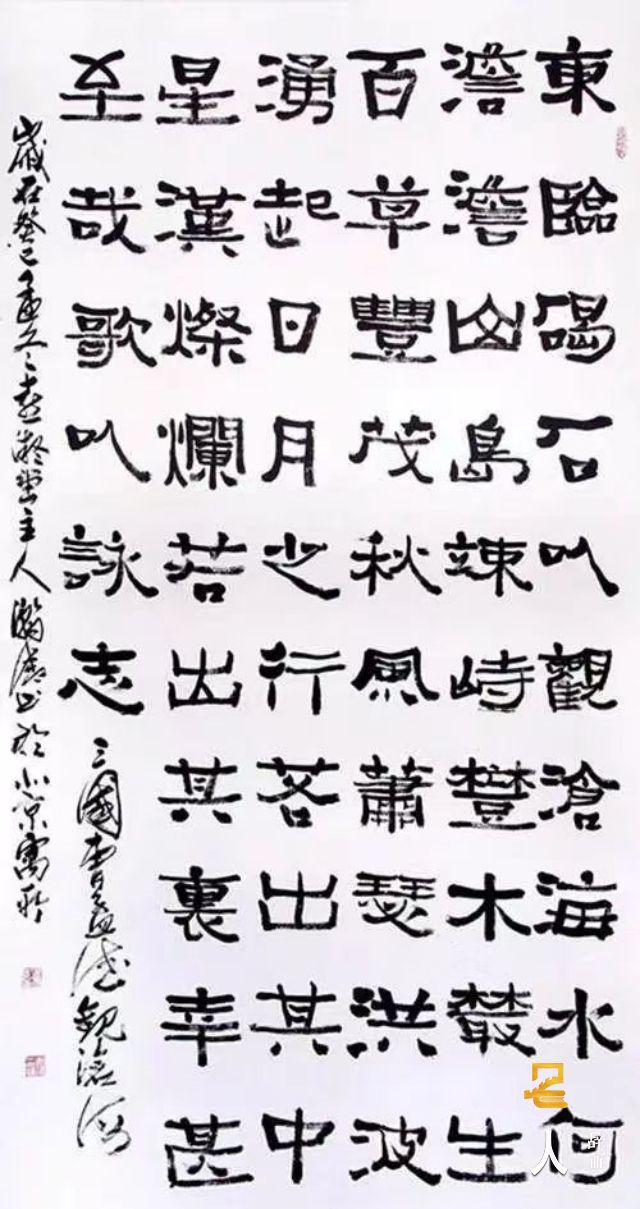 東臨碣石以觀滄海水何
澹澹山島竦峙樹木叢生
百草豐茂秋風蕭瑟洪波
湧起日月之行若出其中
星漢燦爛若出其裏幸甚
至哉歌以詠志
三國曹孟德觀滄海
歲在癸巳孟冬之堂主人書於北京寓所
人